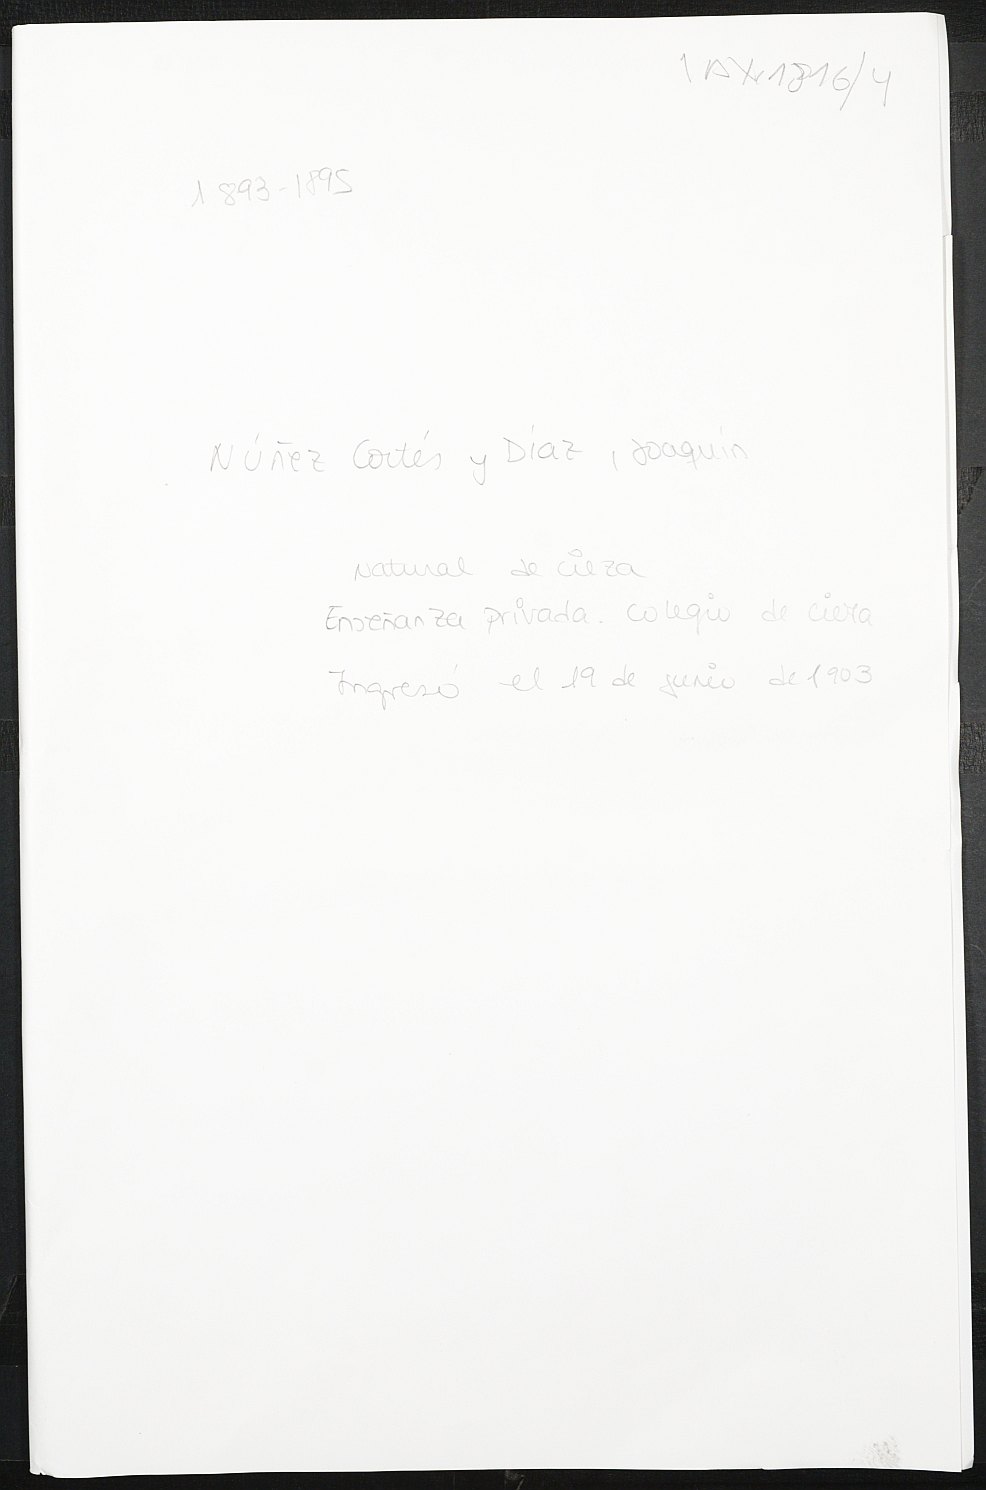 IAX,1316/4
1893-1895
Núñez Cortés y Díaz, Joaquín
Natural de Cieza
Enseñanza privada. Colegio de Cieza
Ingresó el 19 de junio de 1903